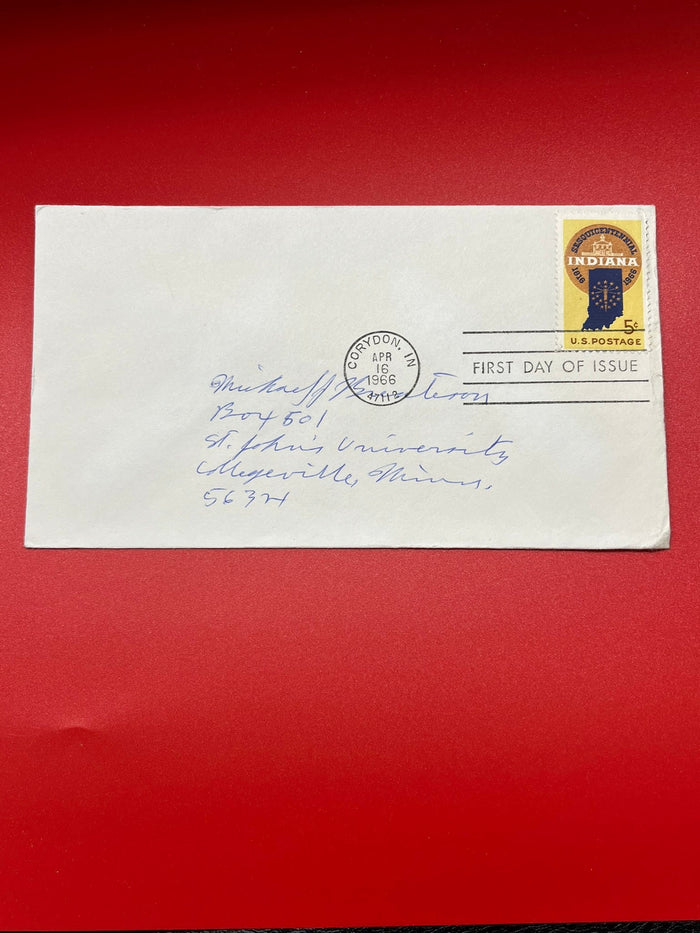 SESQUICENTENNIAL
INDIANA
1816 1966
5¢
U.S. POSTAGE
CORYDON, IN
APR
16
1966
47112
FIRST DAY OF ISSUE
Box 501
St. John's University
Collegeville, Minn.